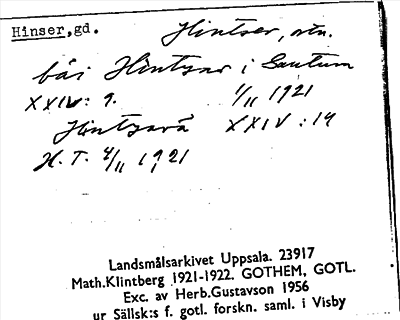 Hinser,gd. Hintser, otn.
båi Hintser i Gautum
XXIV: 9. 1/11 1921
Hintserå XXIV: 14
H. T. 4/11 1921
Landsmålsarkivet Uppsala. 23917
Math.Klintberg 1921-1922. GOTHEM, GOTL.
Exc. av Herb.Gustavson 1956
ur Sällsk:s f. gotl. forskn. saml. i Visby